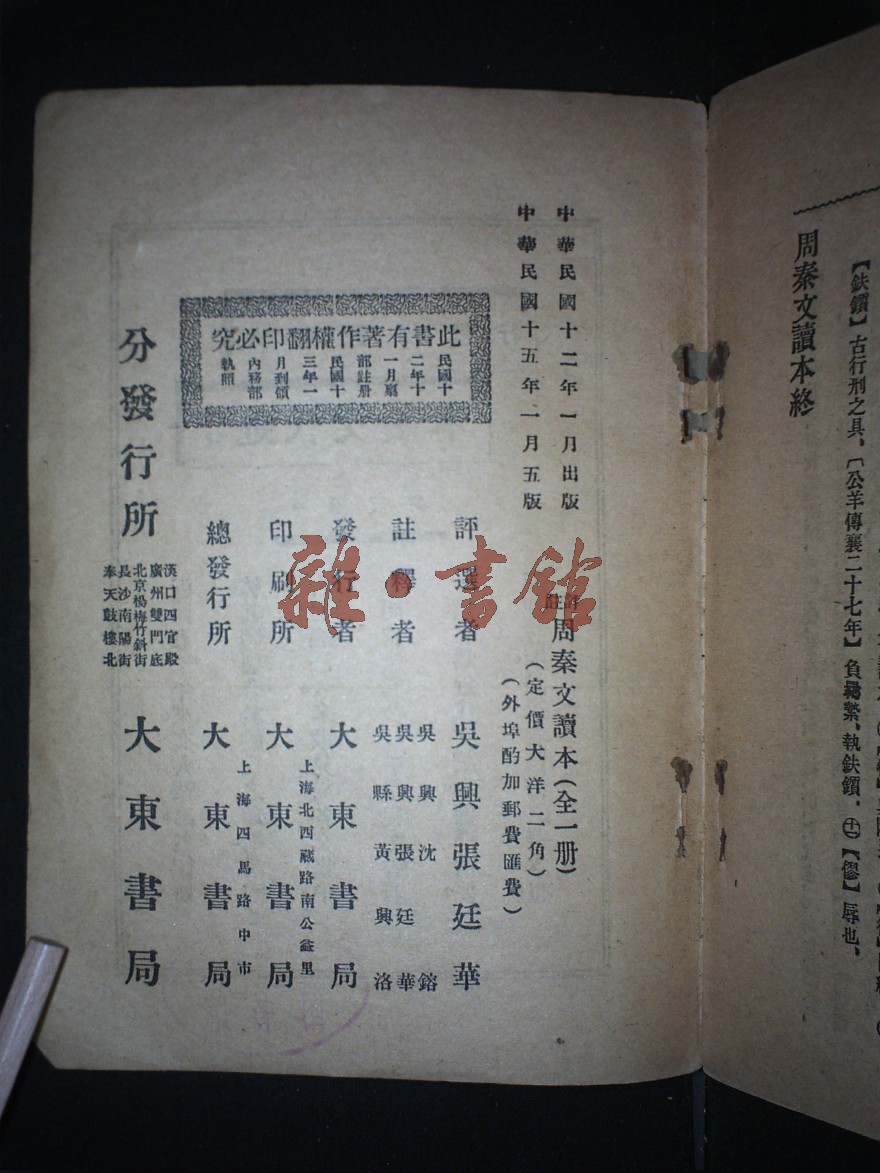 【鈇鑕】古行刑之具，〔公羊傳襄二十七年〕負羈縶，執鈇鑕，㊉【僇】辱也，
周秦文讀本終
中華民國十二年一月出版
中華民國十五年一月五版
周秦文讀本（全一册）
（定價大洋二角）
（外埠酌加郵費匯費）
評選者 吳興張廷華
註釋者 吳興沈鎔
吳興張廷華
吳縣黃興洛
發行者 大東書局
印刷所 上海北西藏路南公益里
大東書局
總發行所 上海四馬路中市
大東書局
此書有著作權翻印必究
民國十
二年十
一月稟
部註册
民國十
三年一
月到領
內務部
執照
分發行所
漢口四官殿
廣州雙門底
北京楊梅竹斜街
長沙南陽街
奉天鼓樓北
大東書局
雜·書館